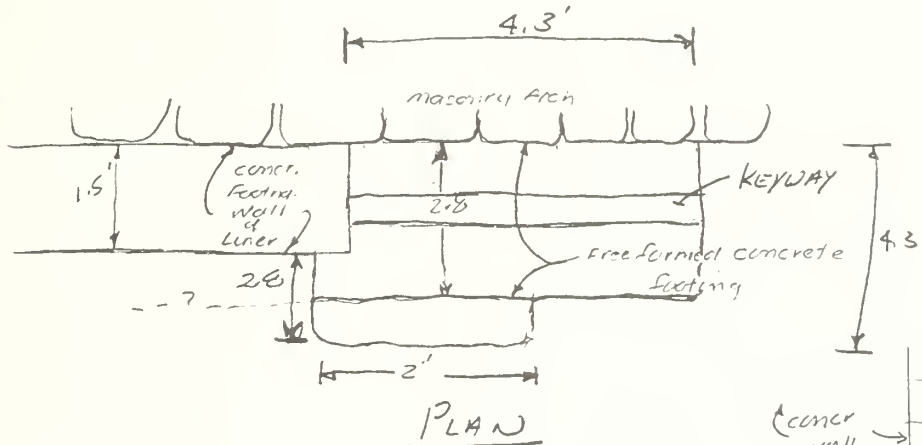 4.3'
masonry Arch
1.5'
concr.
Footing
wall
of
Liner
KEYWAY
2.8
4.3
Free formed concrete
footing
2.8
?
2'
PLAN
concr
wall